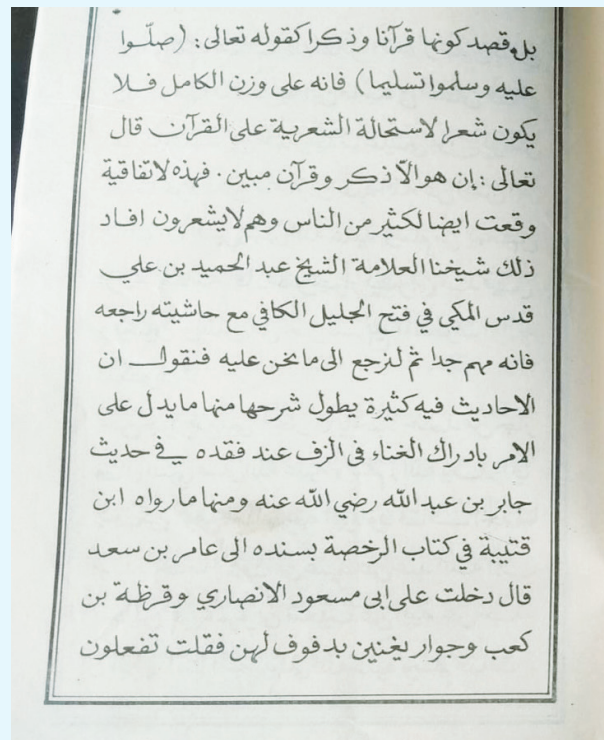 بل قصد كونها قرآنا وذكرا كقوله تعالى: (صلّوا
عليه وسلموا تسليما) فانه على وزن الكامل فلا
يكون شعرا لاستحالة الشعرية على القرآن قال
تعالى: إن هو الّا ذكر وقرآن مبين. فهذه لاتفاقية
وقعت ايضا لكثير من الناس وهم لايشعرون افاد
ذلك شيخنا العلامة الشيخ عبد الحميد بن علي
قدس المكي في فتح الجليل الكافي مع حاشيته راجعه
فانه مهم جدا ثم لنرجع الى ما نحن عليه فنقول ان
الاحاديث فيه كثيرة يطول شرحها منها ما يدل على
الامر بادراك الغناء فى الزف عند فقده في حديث
جابر بن عبد الله رضي الله عنه ومنها ما رواه ابن
قتيبة في كتاب الرخصة بسنده الى عامر بن سعد
قال دخلت على ابى مسعود الانصاري وقرظة بن
كعب وجوار يغنين بدفوف لهن فقلت تفعلون